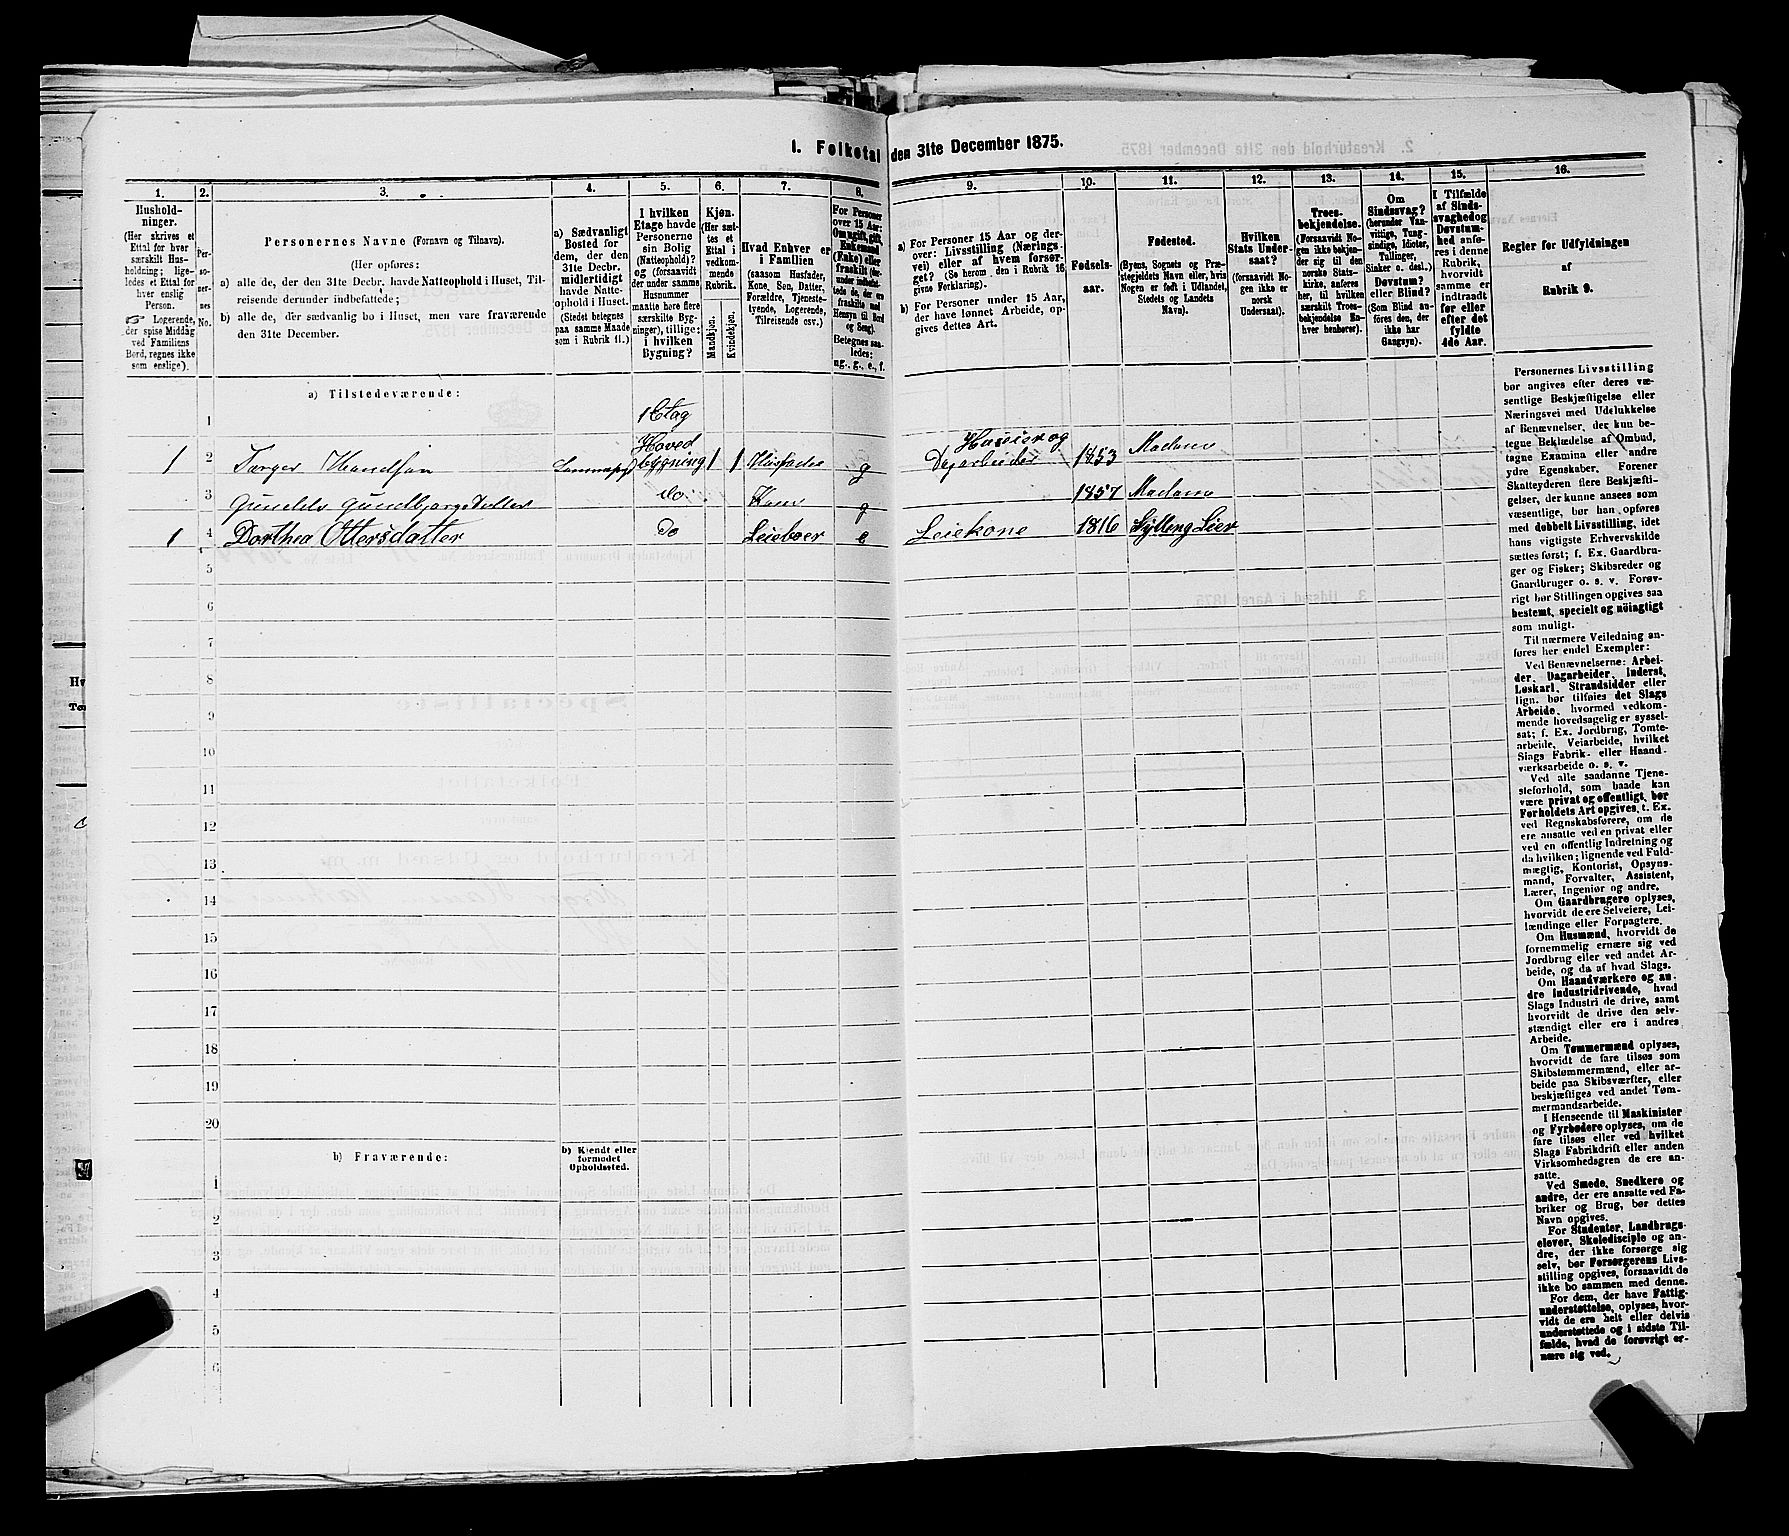 1. Folketal den 31te December 1875.
1. 2. 3. 4. 5. 6. 7. 8. 9. 10. 11. 12. 13. 14. 15. 16.
Hushold-
ninger.
(Her skrives et
Ettal for hver
særskilt Hus-
holdning; lige-
ledes et Ettal for
hver enslig
Person.
☞ Logerende,
der spise Middag
ved Familiens
Bord, regnes ikke
som enslige).
Per-
so-
ner-
nes
No.
Personernes Navne (Fornavn og Tilnavn).
(Her opføres:
a) alle de, der den 31te Decbr. havde Natteophold i Huset, Til-
reisende derunder indbefattede;
b) alle de, der sædvanlig bo i Huset, men vare fraværende
den 31te December.
a) Sædvanligt
Bosted for
dem, der den
31te Decbr.
midlertidigt
havde Natte-
ophold i Huset.
(Stedet betegnes
paa samme Maade
som i Rubrik 11.)
I hvilken
Etage havde
Personerne
sin Bolig
(Natteophold)?
og (forsaavidt
der under samme
Husnummer
maatte høre flere
særskilte Byg-
ninger), tillige:
i hvilken
Bygning?
Kjøn.
(Her sæt-
tes et
Ettal i
vedkom-
mende
Rubrik.
Mandkjøn.
Kvindekjøn.
Hvad Enhver er
i Familien
(saasom Husfader,
Kone, Søn, Datter,
Forældre, Tjeneste-
tyende, Logerende,
Tilreisende osv.)
For Personer
over 15 Aar:
Om ugift, gift,
Enkemand
(Enke) eller
fraskilt (der-
under indbefat-
tede de, der ere
fraskilte med
Hensyn til Bord
og Seng).
Betegnes saa-
ledes:
ug., g., e., f.
a) For Personer 15 Aar og der-
over: Livsstilling (Nærings-
vei) eller af hvem forsør-
get? (Se herom den i Rubrik 16
givne Forklaring).
b) For Personer under 15 Aar,
der have lønnet Arbeide, op-
gives dettes Art.
Fødsels-
aar.
Fødested.
(Byens, Sognets og Præ-
stegjeldets Navn eller, hvis
Nogen er født i Udlandet,
Stedets og Landets
Navn).
Hvilken
Stats Under-
saat?
(forsaavidt No-
gen ikke er
norsk
Undersaat).
Troes-
bekjendelse.
(Forsaavidt No-
gen ikke bekjen-
der sig til den
norske Stats-
kirke, anføres
her, til hvilken
særskilt Troes-
bekjendelse En-
hver henhører).
Om
Sindssvag?
(herunder Van-
vittige, Tung-
sindige, Idioter,
Tullinger,
Sinker o. desl.)
Døvstum?
eller Blind?
(Som Blind an-
føres den, der
ikke har
Gangsyn).
I Tilfælde
af Sinds-
svaghed og
Døvstum-
hed anfø-
res i denne
Rubrik,
hvorvidt
samme er
indtraadt
før eller
efter det
fyldte
4de Aar.
Regler for Udfyldningen
af
Rubrik 9.
a) Tilstedeværende:
1
1 Etag
1 2 Hoved bygning 1 1 Husfader g Huseier og Dagarbeider 1853 Modum
3 Do. Kone g 1857 Modum
1 4 Dorthea Ottersdatter Do Leieboer e Leiekone 1816 Sylling Lier
5
6
7
8
9
10
11
12
13
14
15
16
17
18
19
20
b) Fraværende:
b) Kjendt eller
formodet
Opholdssted.
1
2
3
4
5
6
Personernes Livsstilling
bør angives efter deres væ-
sentlige Beskjæftigelse eller
Næringsvei med Udelukkelse
af Benævnelser, der kun be-
tegne Beklædelse af Ombud,
tagne Examina eller andre
ydre Egenskaber. Forener
Skatteyderen flere Beskjæfti-
gelser, der kunne ansees som
væsentlige, bør han opføres
med dobbelt Livsstilling, idet
hans vigtigste Erhvervskilde
sættes først; f. Ex. Gaardbru-
ger og Fisker; Skibsreder og
Gaardbruger o. s. v. Forøv-
rigt bør Stillingen opgives saa
bestemt, specielt og nöiagtigt
som muligt.
Til nærmere Veiledning an-
føres her endel Exempler:
Ved Benævnelserne: Arbei-
der, Dagarbeider, Inderst,
Løskarl, Strandsidder eller
lign. bør tilføies det Slags
Arbeide, hvormed vedkom-
mende hovedsagelig er syssel-
sat; f. Ex. Jordbrug, Tomte-
arbeide, Veiarbeide, hvilket
Slags Fabrik- eller Haand-
værksarbeide o. s. v.
Ved alle saadanne Tjene-
steforhold, som baade kan
være privat og offentligt, bør
Forholdets Art opgives, t. Ex.
ved Regnskabsførere, om de
ere ansatte ved en privat eller
ved en offentlig Indretning og
da hvilken; lignende ved Fuld-
mægtig, Kontorist, Opsyns-
mand, Forvalter, Assistent,
Lærer, Ingeniør og andre.
Om Gaardbrugere oplyses,
hvorvidt de ere Selveiere, Lei-
lændinge eller Forpagtere.
Om Husmænd, hvorvidt de
fornemmelig ernære sig ved
Jordbrug eller ved andet Ar-
beide, og da af hvad Slags.
Om Haandværkere og an-
dre Industridrivende, hvad
Slags Industri de drive, samt
hvorvidt de drive den selv-
stændigt eller ere i andres
Arbeide.
Om Tømmermænd oplyses,
hvorvidt de fare tilsøs som
Skibstømmermænd, eller ar-
beide paa Skibsværfter, eller
beskjæftiges ved andet Tøm-
mermandsarbeide.
I Henseende til Maskinister
og Fyrbødere oplyses, om de
fare tilsøs eller ved hvilket
Slags Fabrikdrift eller anden
Virksomhedsgren de ere an-
satte.
Ved Smede, Snedkere og
andre, der ere ansatte ved Fa-
briker og Brug, bør dettes
Navn opgives.
For Studenter, Landbrugs-
elever, Skoledisciple og an-
dre, der ikke forsørge sig
selv, bør Forsørgerens Livs-
stilling opgives, forsaavidt de
ikke bo sammen med denne.
For dem, der have Fattig-
understøttelse, oplyses, hvor-
vidt de ere helt eller delvis
understøttede og i sidste Til-
fælde, hvad de forøvrigt er-
nære sig ved.